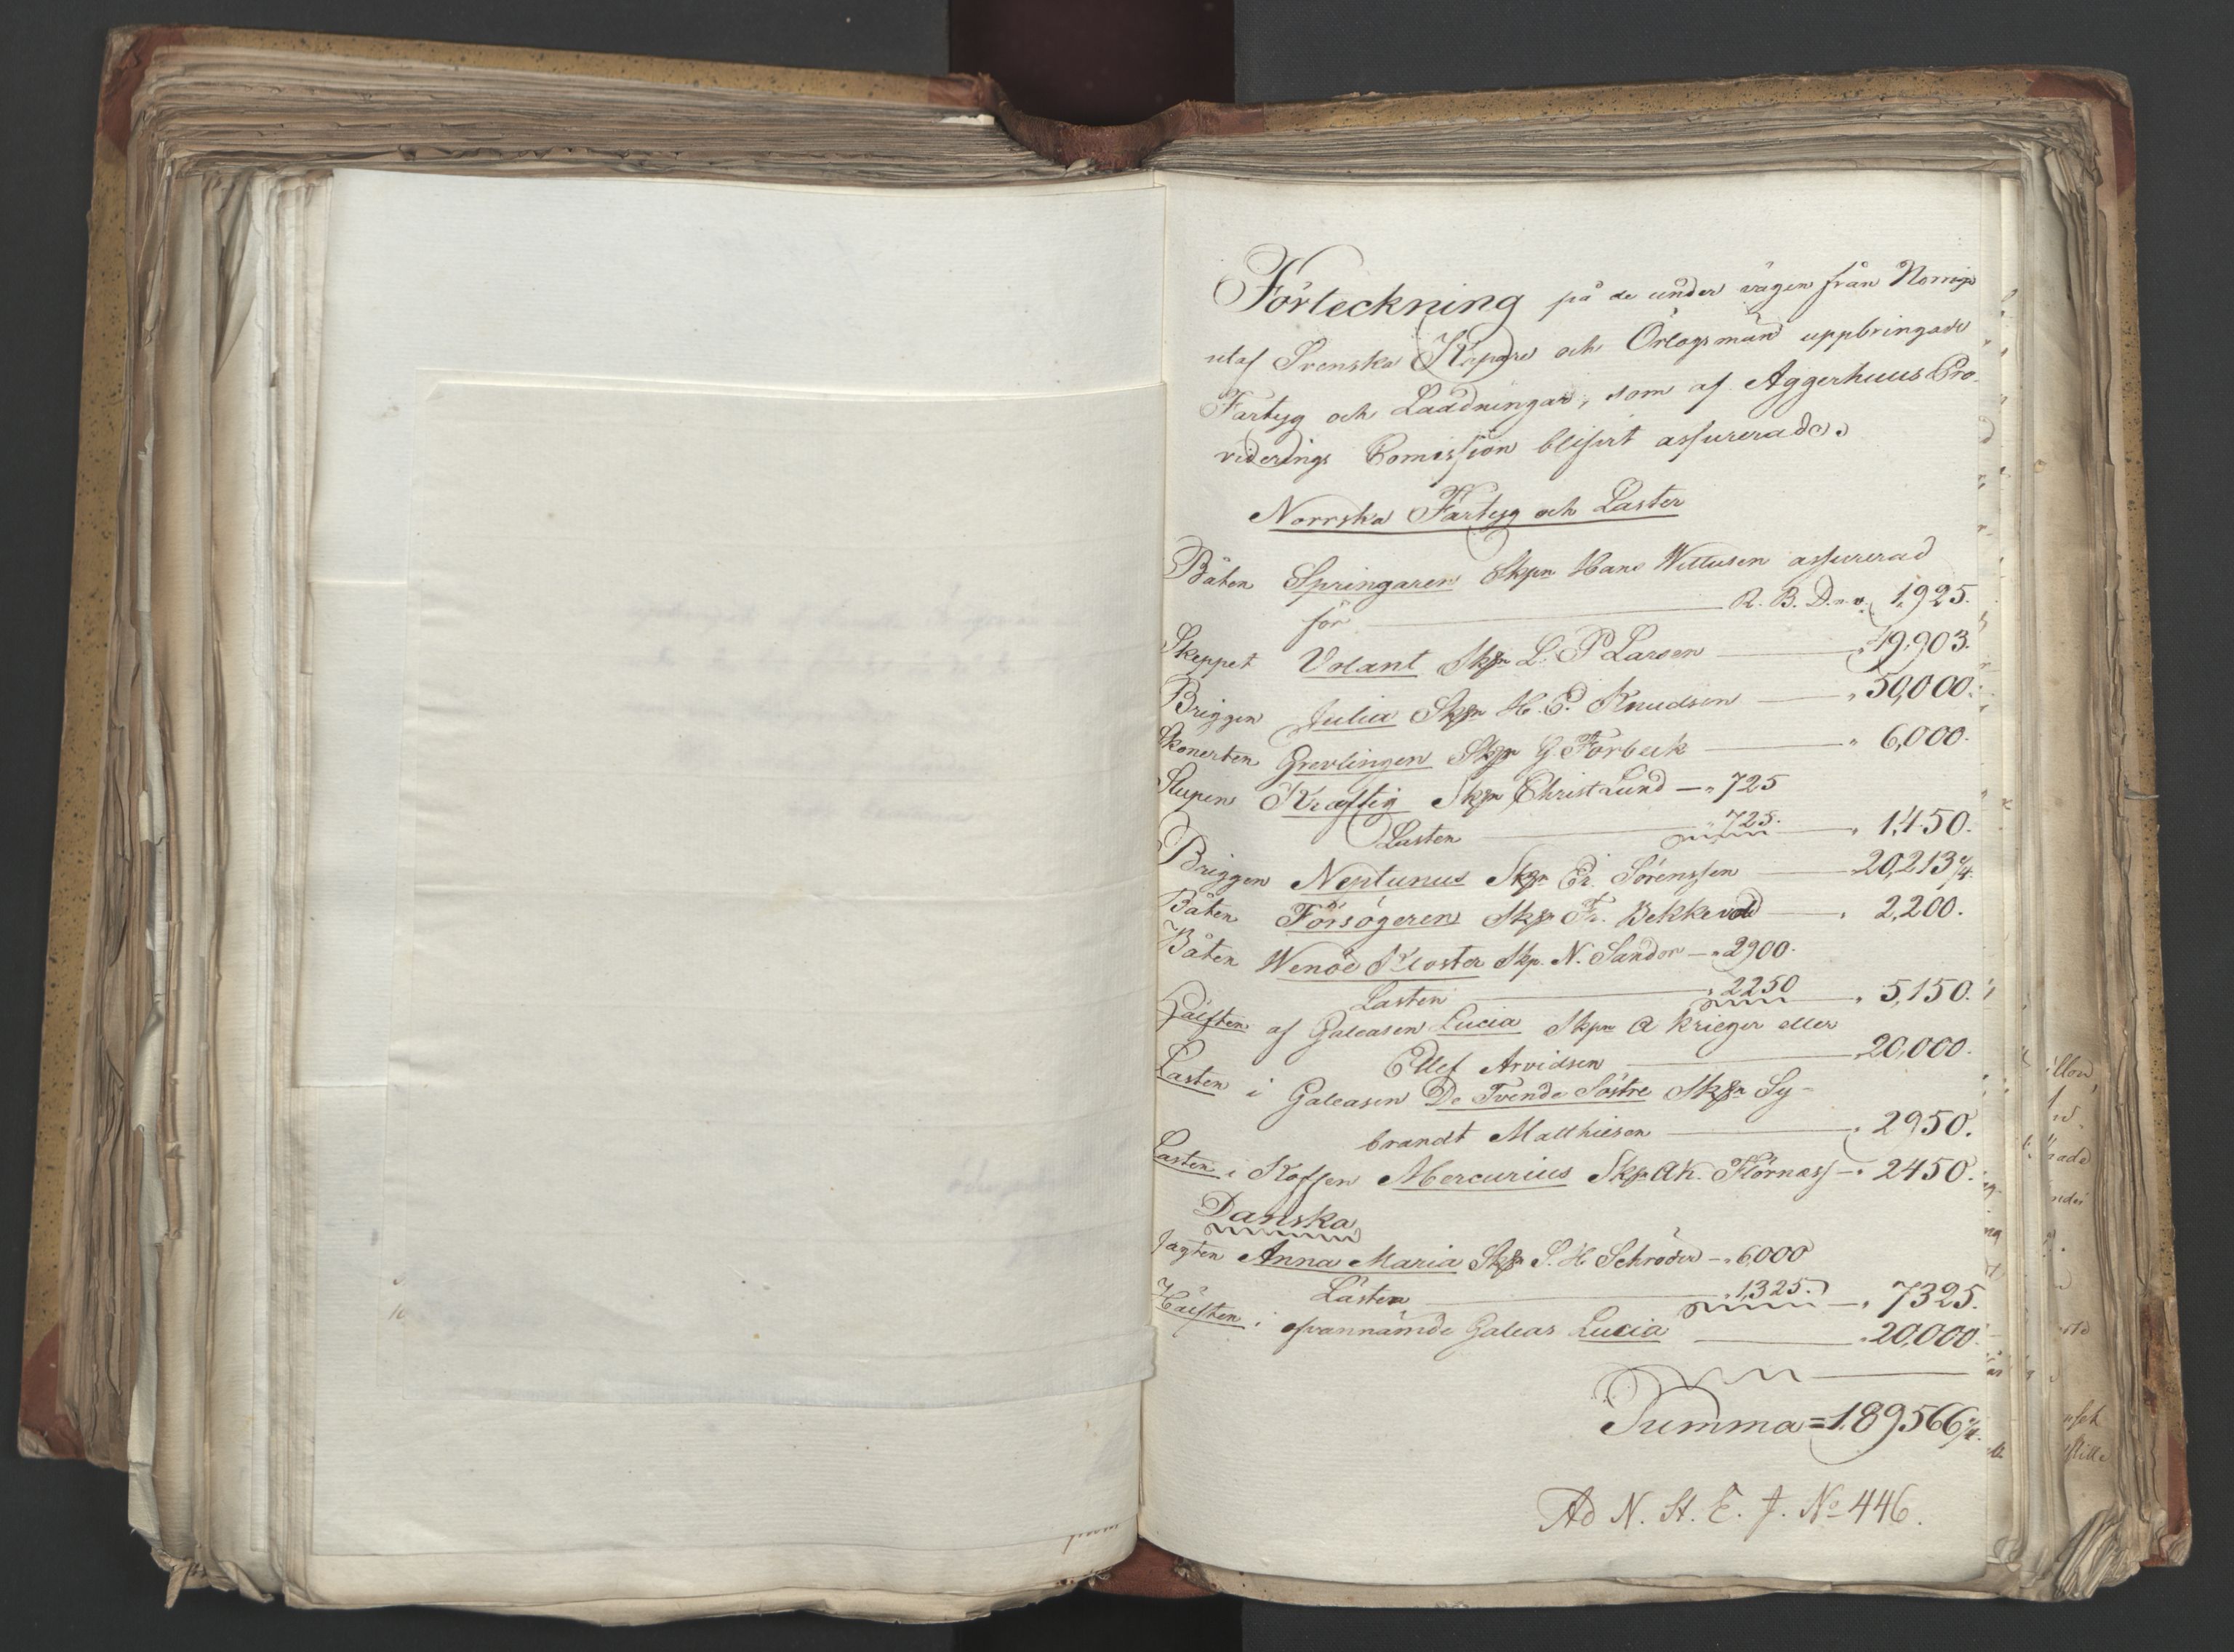 Förteckning på de under vägen från Norrige
utaf Svenska Kapare och Örlogsmän uppbringade
Fartyg och Laddningar, som af Aggerhuus Pro-
viderings Comission blifvit assurerade.
Norrska Fartyg och Laster
Båten Springaren Skpn Hans Wittusen assurerad
för R. B. D. n. v. 1,925.
Skeppet Volant Skpn L. P Larsen " 49,903.
Briggen Julia Skpn H. E. Knudsen " 50,000.
Skonerten Grevlingen Skpr G Forbeck " 6,000.
Slupen Kræftig Skpn Christ Lund — " 725
Lasten 725. " 1,450.
Briggen Neptunus Skpr Er. Sörenssen 20,213 3/4.
Båten Försögeren Skpr Fr. Bekkevold " 2,200.
Båten Wenöe Kloster Skp. N. Sandor — " 2900.
Lasten " 2250 " 5,150.
Hälften af Galeasen Lucia Skpn A Krieger eller
Ellef Arvidsen 20,000.
Lasten i Galeasen De Tvende Söstre Skpr Sy-
brandt Matthiesen " 2950.
Lasten i Koffen Mercurius Skpr A K. Flörness — " 2450.
Danska
Jagten Anna Maria Skpr S. H Schröder — " 6,000
Lasten " 1,325. — " 7325.
Hälften i ofvannämde Galeas Lucia " 20,000.
Summa = 189566 3/4.
Ad N. St. E. J. No 446.